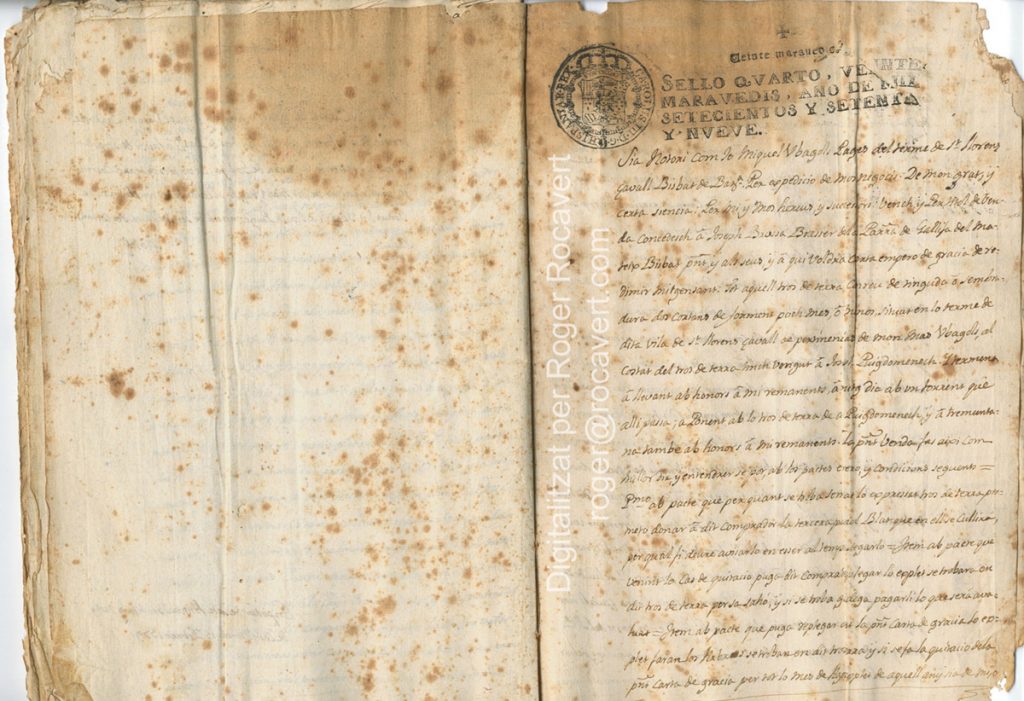 Veinte maraved
SELLO QVARTO, VEINTE
MARAVEDIS, AÑO DE MIL
SETECIENTOS Y SETENTA
Y NVEVE.
Sia Notori com Jo Miquel Vbagols Pages del terme de St. Llorens
çavall Bisbat de Barna. Per expedicio de mos negocis: De mon grat, y
certa siencia: Per mi y mos hereus y succesors: Vench, y Per titol de Ven-
da Concedesch â Joseph Brasser de la Parra de Gallifa del ma-
teix Bisbat pnt. y als seus, y â qui voldra Carta empero de gracia de re-
dimir mitgensant: Tot aquell tros de terra Conreu de tinguda ô sembra-
dura dos cortans de forment poch mes, ô menos, situat en lo terme de
dita vila de St. Llorens çavall de pertinencias de mon Mas Vbagols, al
Costat del tros de terra tinch vengut â Joseph Puigdomenech
â llevant ab honors â mi remanents, â mig dia ab un torrent que
alli passa; â Ponent ab lo tros de terra de Puigdomenech, y â tremunta-
na tambe ab honors â mi remanents. la pnt Venda fas aixi com
millor dir, y entendrer se pot ab los pactes y Condicions seguents=
Pmo. ab pacte que per quant se troba lo expressat tros de terra pro-
meto donar â dit Comprador la tercera part del Blat que en ell se Cullira,
per qual fi deure avisarlo en esser al temps segarlo= Item ab pacte que
venint lo Cas de quitacio puga dit Comprar plegar lo esplet se trobara en
dit tros de terra per sa saho, y si se troba pagarli lo que sera ava-
luat= Item ab pacte que puga replegar en la pnt Carta de gracia lo es-
plet faran los se troban en dit tros de terra y si se fa la quitacio de la
pnt Carta de gracia per tot lo mes de de aquell any
Digitalitzat per Roger Rocavert
roger@rocavert.com